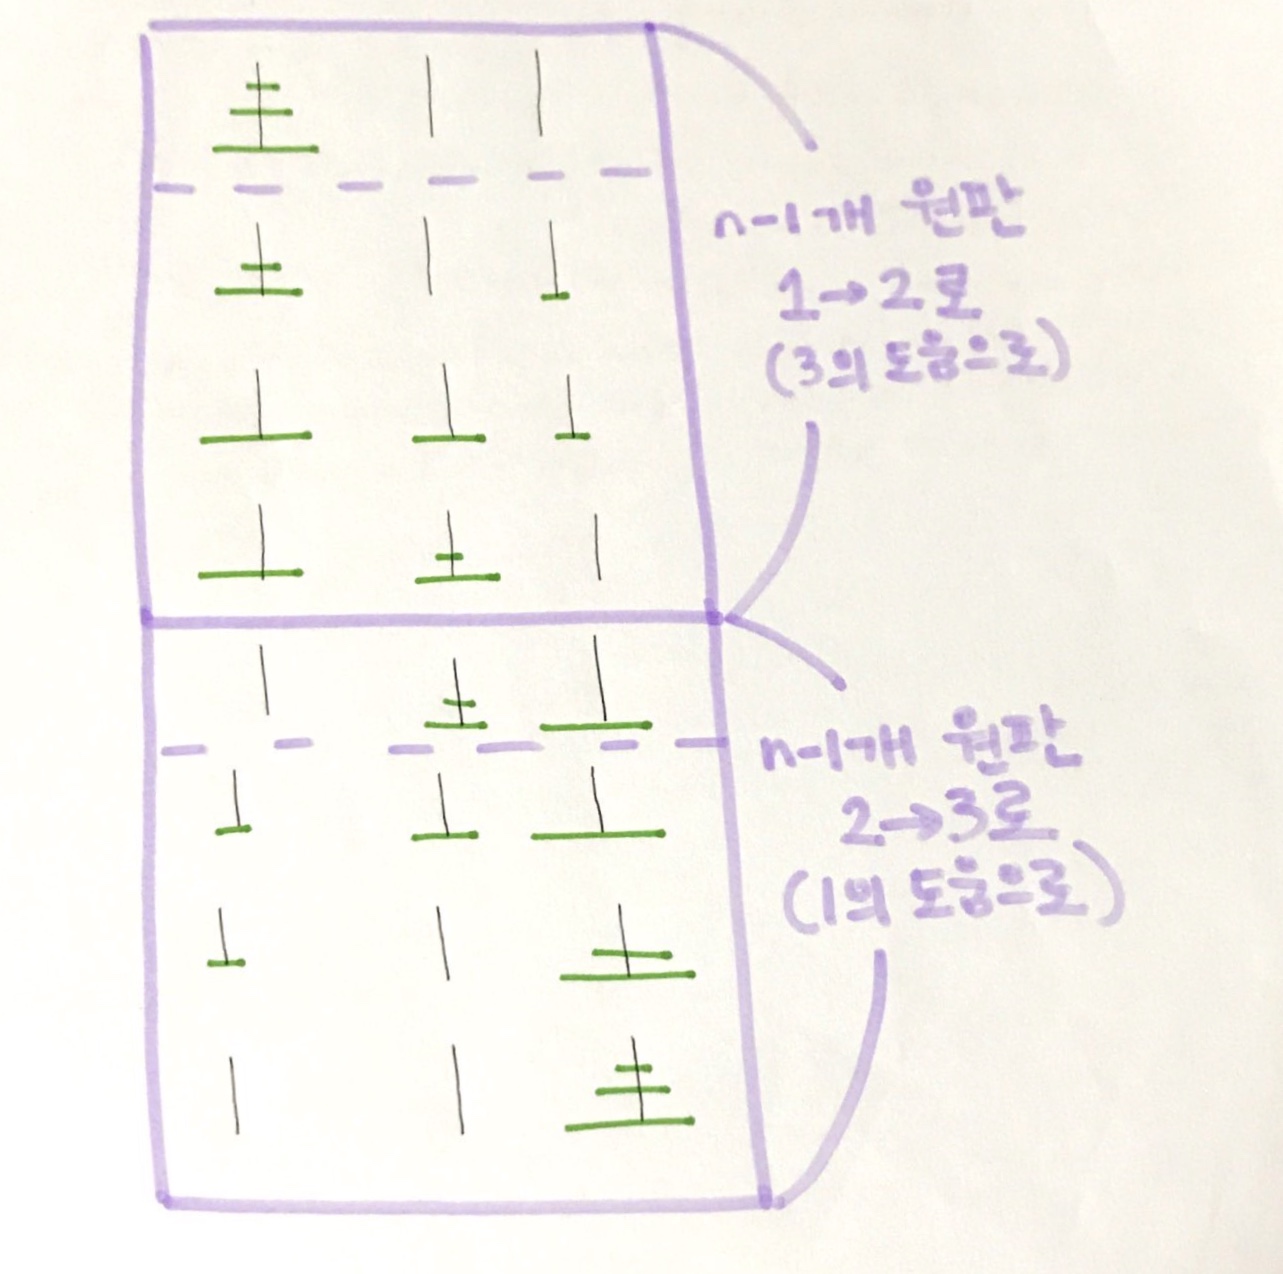 n-1개 원판
1→2로
(3의 도움으로)
n-1개 원판
2→3로
(1의 도움으로)